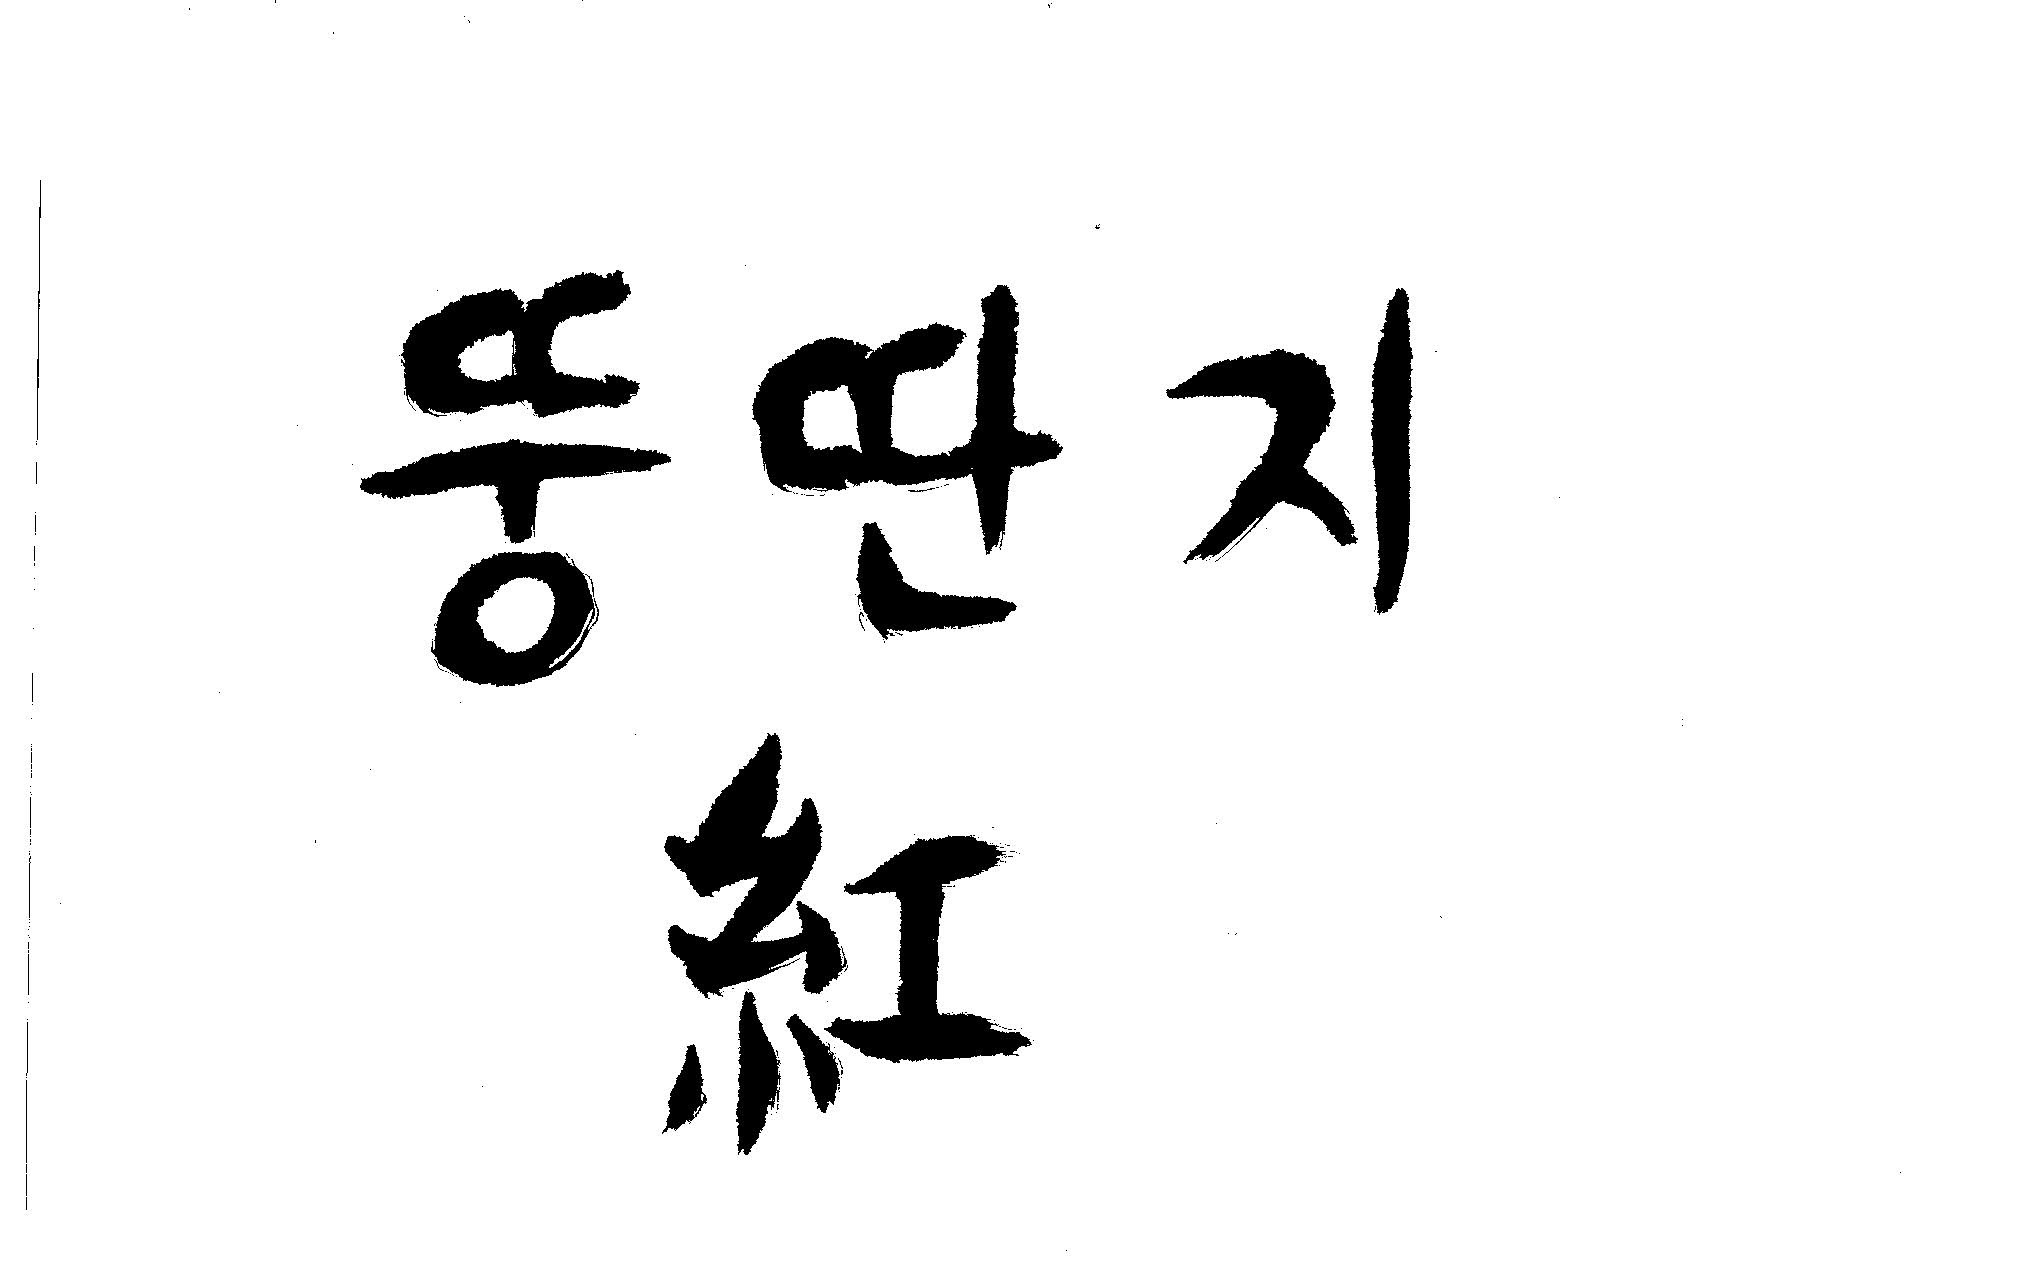 뚱딴지
紅